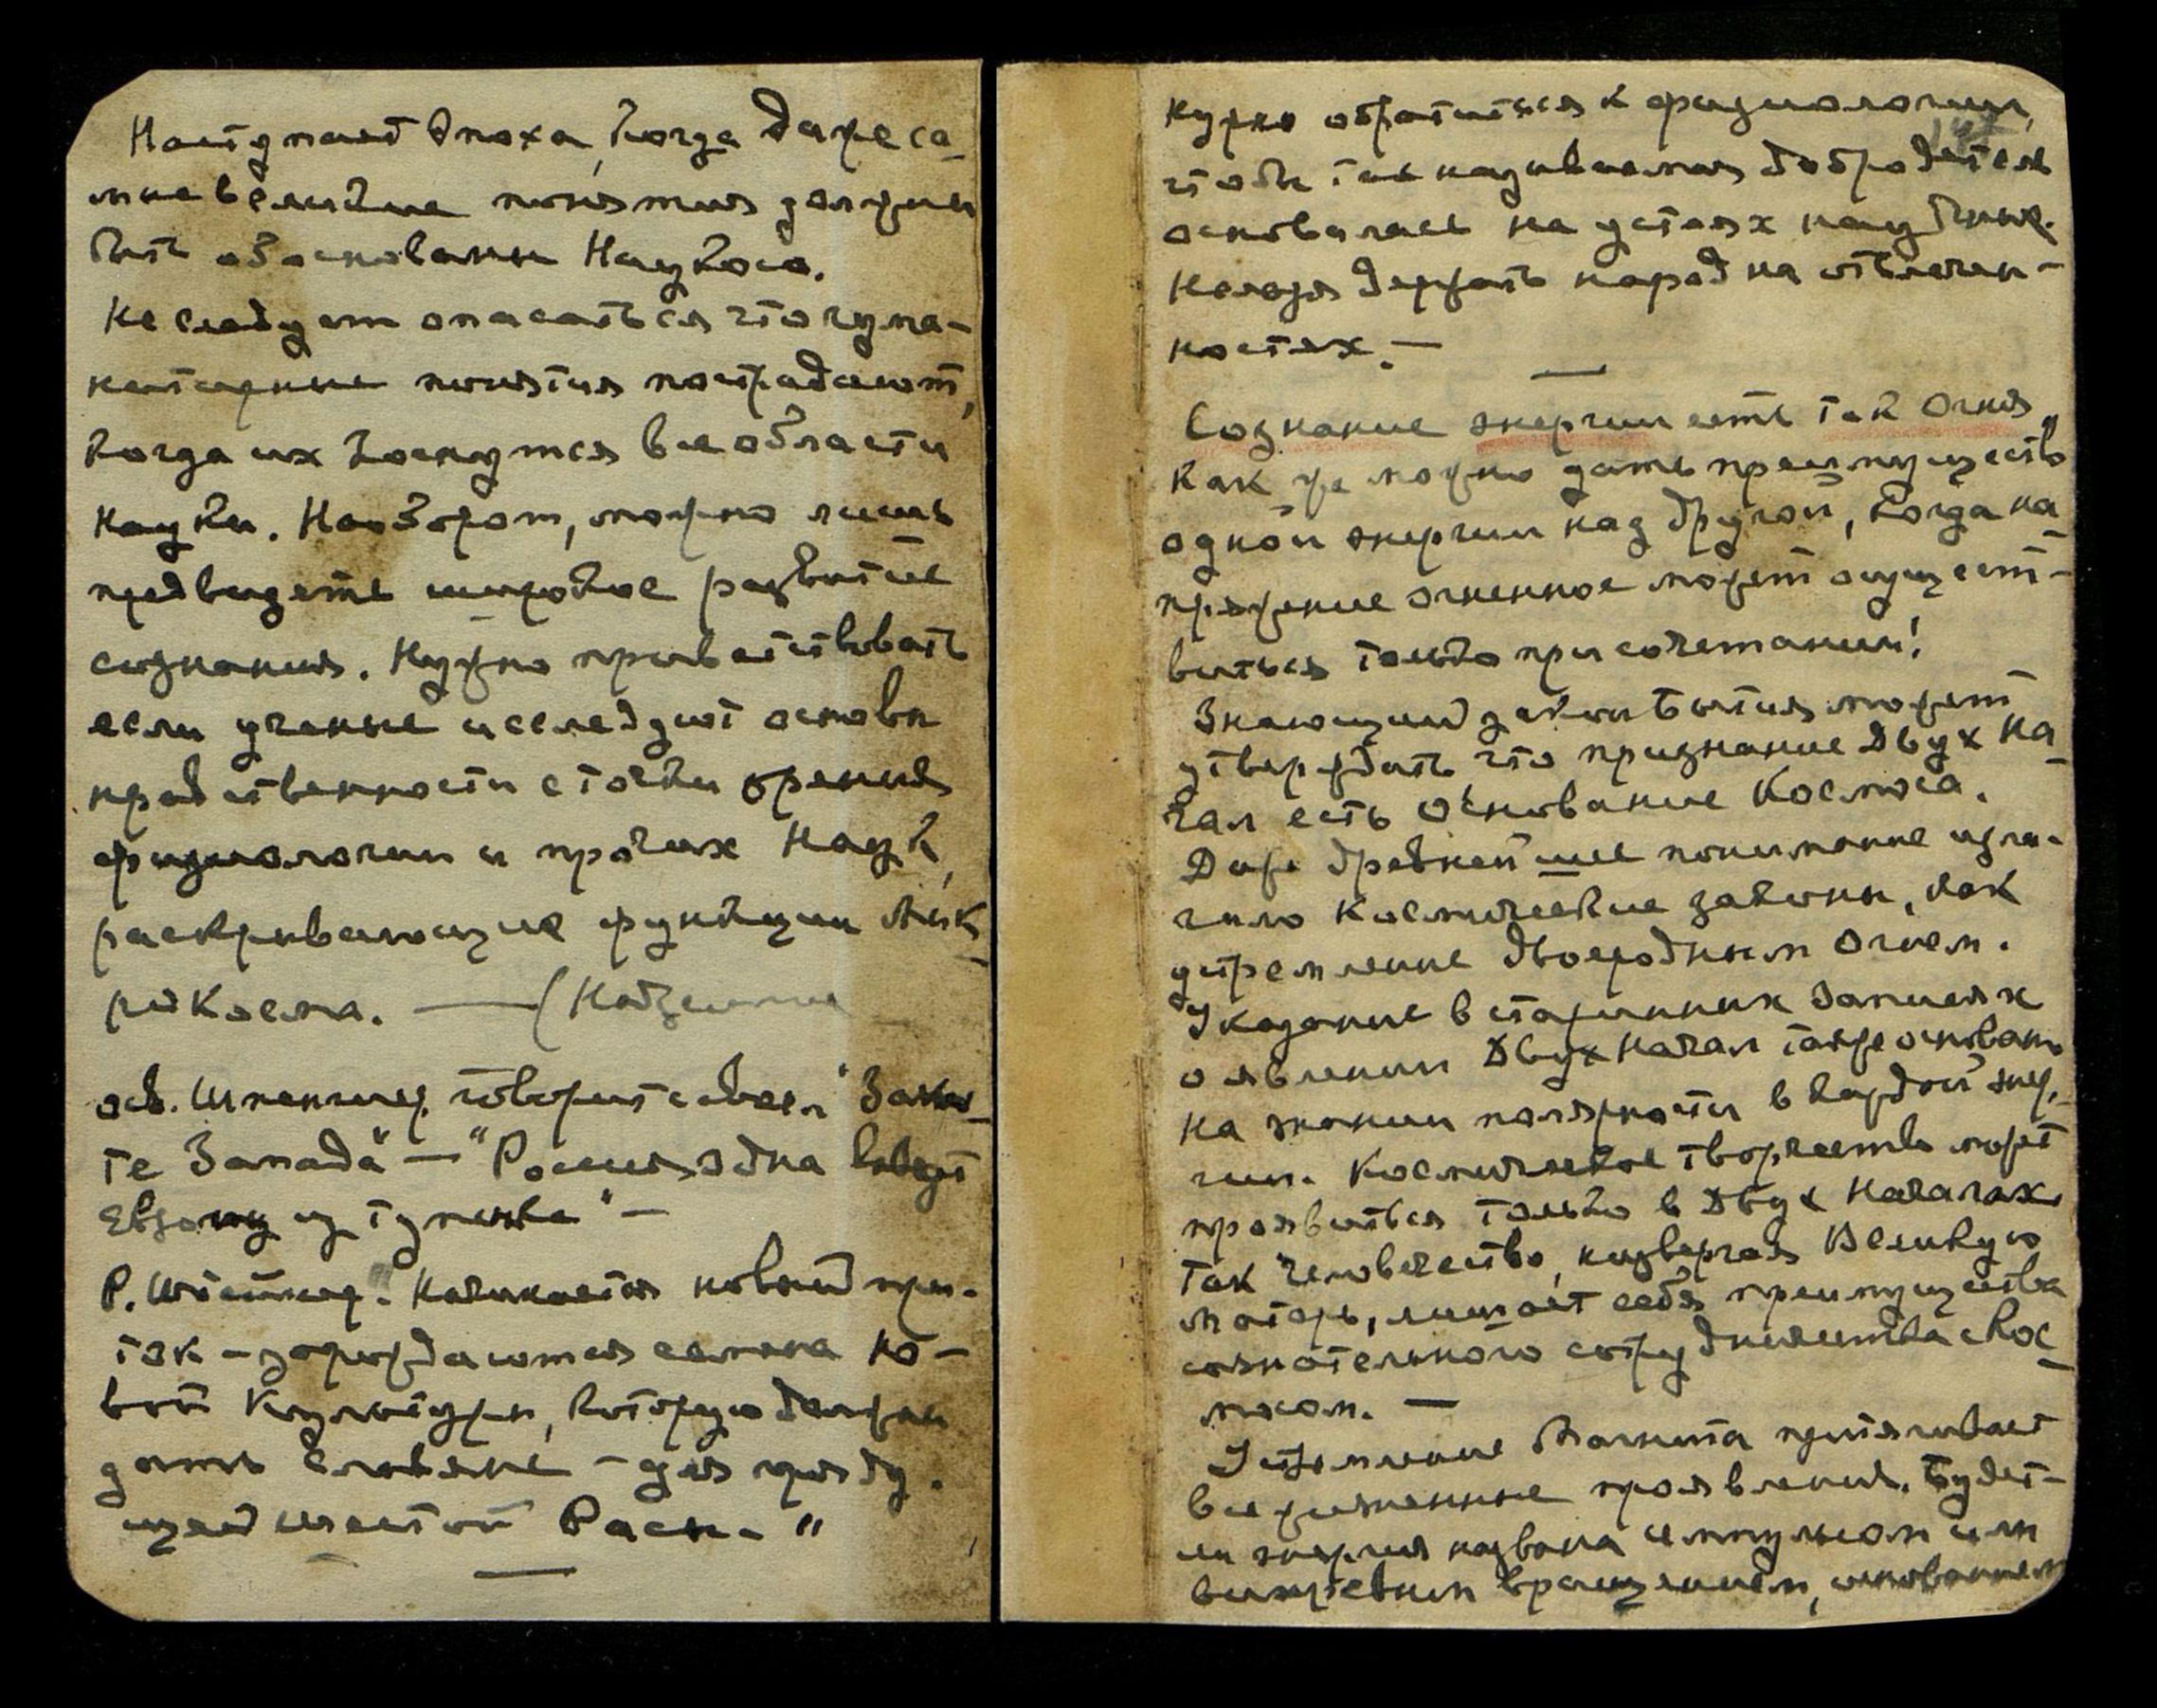 Наступает эпоха, когда даже са-
мые великие понятия должны
быть обоснованы Наукою.
Не следует опасаться что гума-
нитарные понятия пострадают,
когда их коснутся все области
науки. Наоборот, можно лишь
предвидеть широкое развитие
сознания. Нужно приветствовать
если ученые исследуют основы
нравственности с точки зрения
физиологии и прочих Наук,
раскрывающие функции Мик-
рокосма. — (Надземное
Осв. Шпенглер говорит в своем "Зака-
те Запада" — "Россия одна выведет
Европу из тупика" —
Р. Штейнер: Начинается новый при-
ток – зарождаются семена но-
вой Культуры, которую должны
дать Славяне – для гряду-
щей шестой Расы. "
Нужно обратиться к физиологии,
чтобы так называемая добродетель
основалась на устоях научных.
Нельзя держать народ на отвлечен-
ностях. —
Сознание энергии есть ток Огня
Как же можно дать преимущество
одной энергии над другой, когда на-
пряжение огненное может осущест-
виться только при сочетании!
Знающий закон Бытия может
утверждать что признание Двух На-
чал есть Основание Космоса.
Даже древнейшее понимание изла-
гало Космические законы, как
устремление двоеродным Огнем.
Указание в старинных Записях
о явлении Двух Начал также основано
на знании полярности в каждой энер-
гии. Космическое творчество может
проявиться только в Двух Началах.
Так человечество, низвергая Великую
Матерь, лишает себя преимущества
сознательного сотрудничества с Кос-
мосом. —
Устремление Магнита притягивает
все жизненные проявления. Будет-
ли энергия названа импульсом или
вихревым вращением, основанием